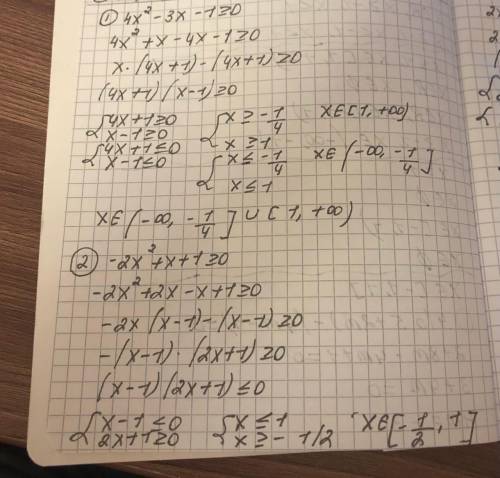 ① 4x² - 3x - 1 ≥ 0
4x² + x - 4x - 1 ≥ 0
x · (4x+1) - (4x+1) ≥ 0
(4x+1) (x-1) ≥ 0
{4x+1 ≥ 0 {x ≥ -1/4 x∈[1, +∞)
x-1 ≥ 0 x ≥ 1
{4x+1 ≤ 0 {x ≤ -1/4 x∈(-∞, -1/4]
x-1 ≤ 0 x ≤ 1
x∈(-∞, -1/4] ∪ [1, +∞)
② -2x² + x + 1 ≥ 0
-2x² + 2x - x + 1 ≥ 0
-2x (x-1) - (x-1) ≥ 0
-(x-1) · (2x+1) ≥ 0
(x-1) (2x+1) ≤ 0
{x-1 ≤ 0 {x ≤ 1 x∈[-1/2, 1]
2x+1 ≥ 0 x ≥ - 1/2